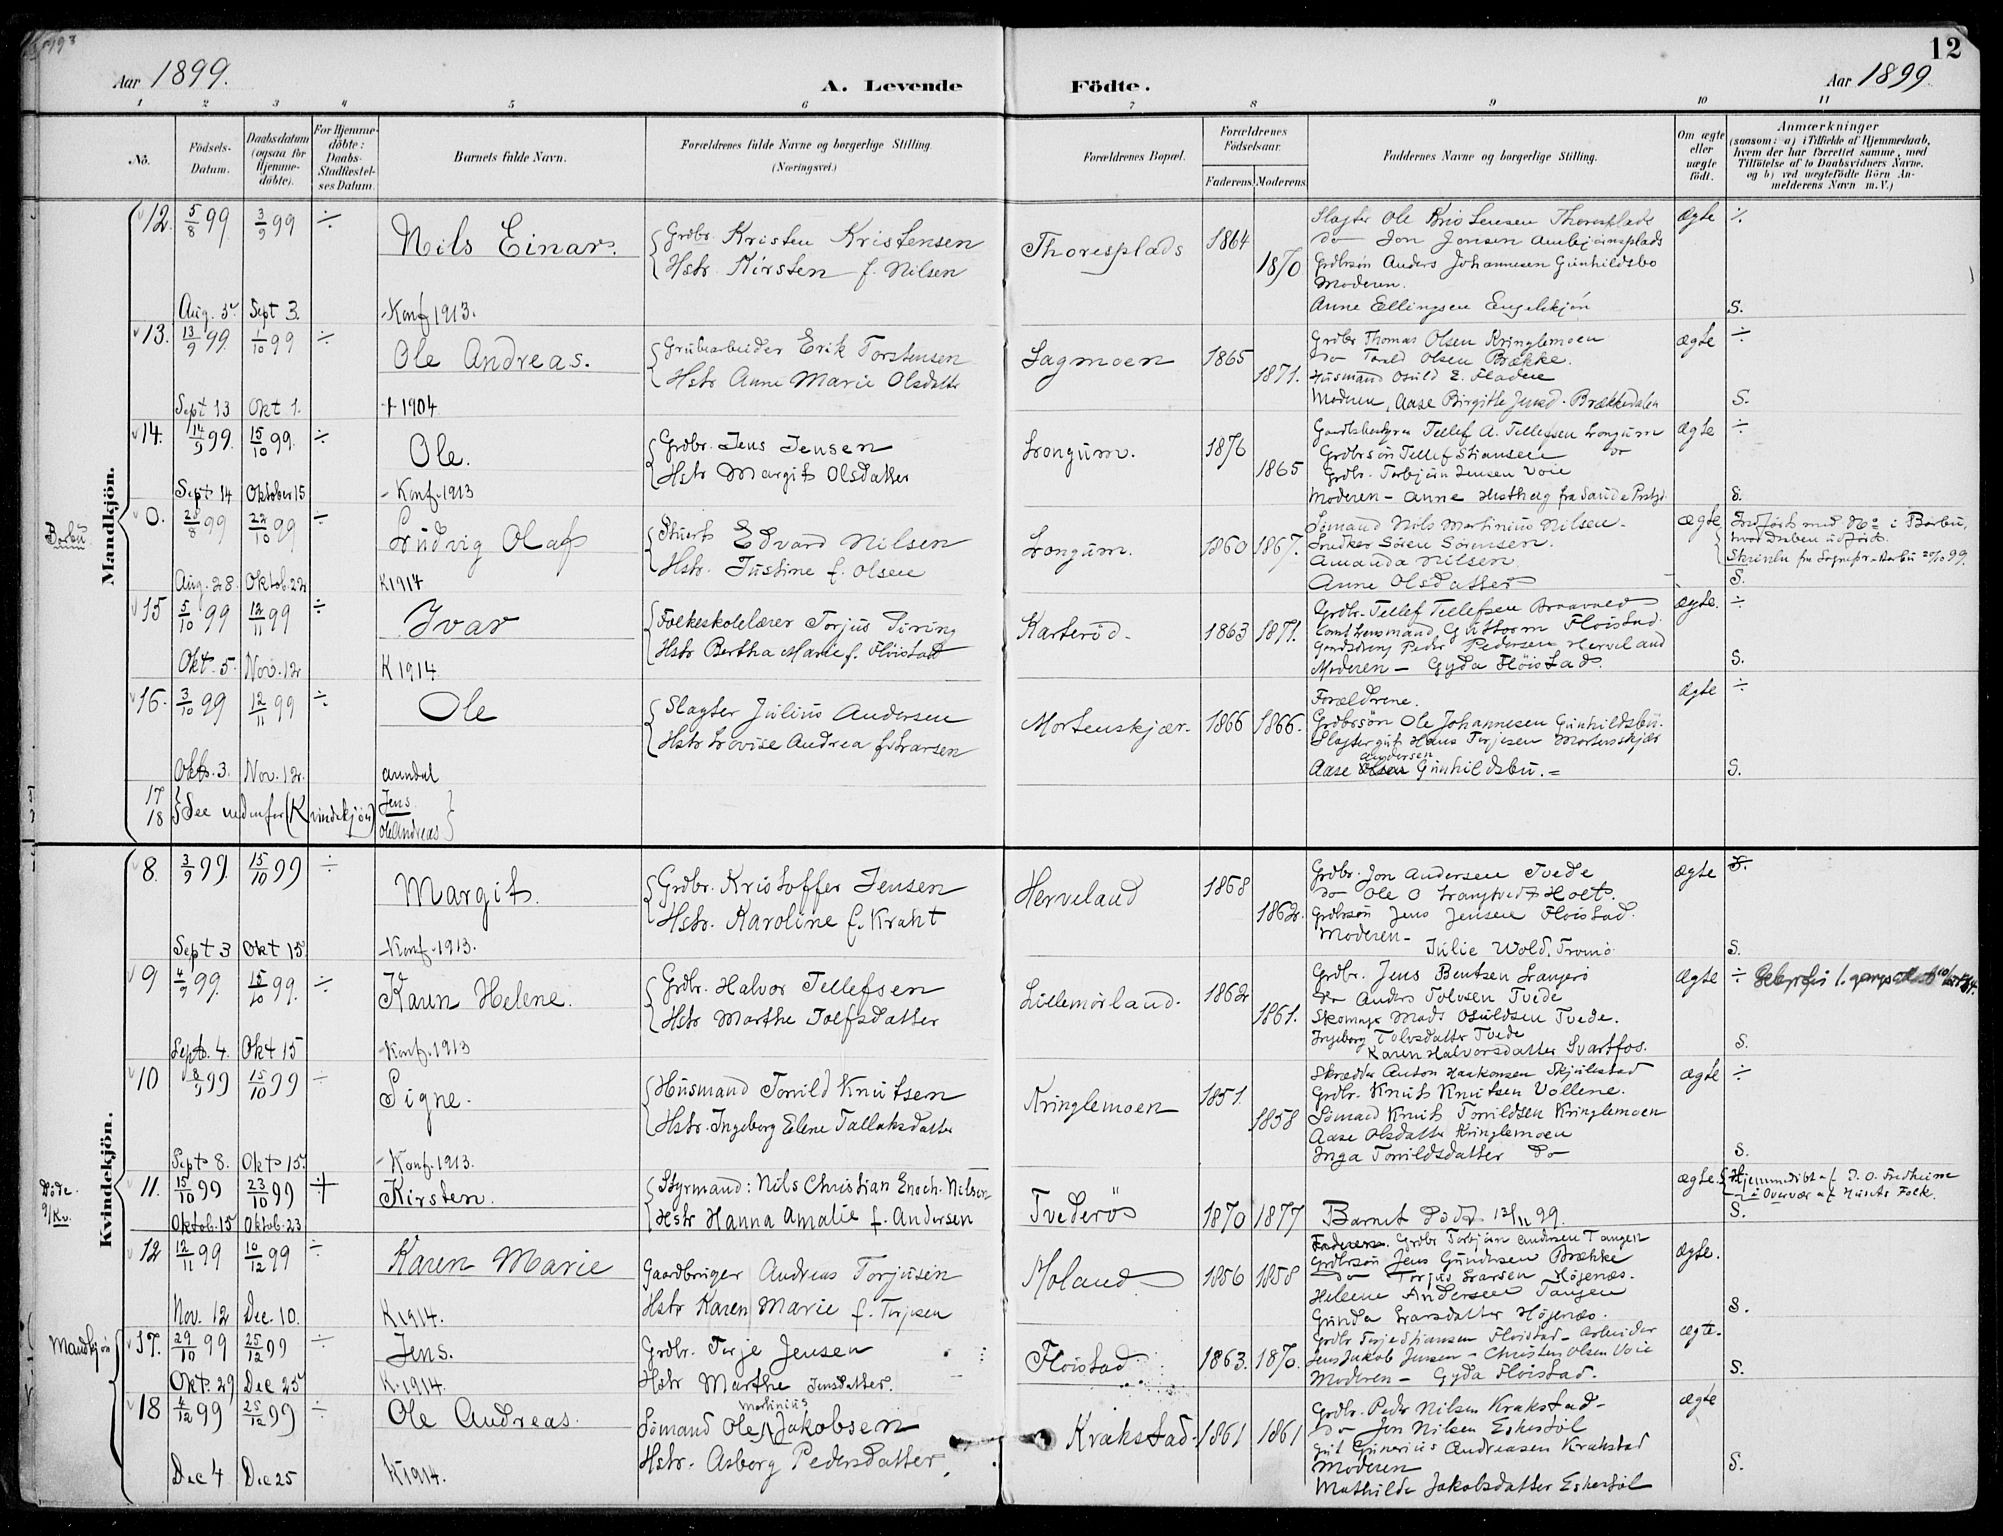 Aar 1899.
A. Levende Födte.
Aar 1899
12
1 2 3 4 5 6 7 8 9 10 11
Nö.
Födsels-
Datum.
Daabsdatum
(ogsaa for
Hjemme-
döbte).
For Hjemme-
döbte:
Daabs-
Stadfæstel-
ses Datum.
Barnets fulde Navn.
Forældrenes fulde Navne og borgerlige Stilling.
(Næringsvei.)
Forældrenes Bopæl.
Forældrenes
Födselsaar.
Faderens. Moderens.
Faddernes Navne og borgerlige Stilling.
Om ægte
eller
uægte
født.
Anmærkninger
(saasom: a) i Tilfælde af Hjemmedaab,
hvem der har forrettet samme, med
Tilföielse af to Daabsvidners Navne,
og b) ved uægtefödte Börn An-
melderens Navn m. V.)
Mandkjön.
12. 5/8 99 3/9 99 ÷
Nils Einar.
Grdbr. Kristen Kristensen
Hstr. Kirsten f. Nilsen
Thoresplads
1864
1870
Slagter Ole Kristensen Thoresplads
do Jon Jensen
Grdbrsön Anders Johannesen Gunhildsbo
Moderen.
Anne Ellingsen Engelskjön
Ægte ÷
Sept 3.
Konf 1913.
S.
13. 13/9 99. 1/10 99 ÷
Ole Andreas.
Grubearbeider Erik Torstensen
Hstr Anne Marie Olsdatter
Lagmoen
1865
1871.
Grdbr Thomas Olsen Kringlemoen
do Olsen Brække.
Husmand Osuld E. Fladen
Moderen, Aase Birgitte Brækkedalen
ægte ÷
Sept 13 Okt 1.
+ 1904.
S.
14. 14/9 99. 15/10 99. ÷
Ole.
Grdbr. Jens Jensen
Hstr Margit Olsdatter
Longum.
1876
1865
Tellef A. Tellefsen Longum
Grdbrsön Tellef do
Grdbr. Torbjörn Jensen Voie
Moderen - Anne
ægte ÷
Sept 14 Oktober 15
- Konf. 1913
S.
Barbu.
0. 28/8 99 22/10 99 ÷
Ludvig Olaf
Stuert Edvard Nilsen
Hstr. Justine f. Olsen
Longum.
1860 1867.
Sömand Nils Martinius Nilsen.
Snedker Sören Sörensen.
Amanda Nilsen
Anne Olsdatter
ægte
Indfört med No 0 i Barbu,
hvor Daaben udfört.
Skrivelse fra Sognepr. Barbu 20/10 99.
Aug. 28. Oktob. 22
K 1914
S.
15 5/10 99 12/11 99 ÷
Ivar
Folkeskolelærer Torjus
Hstr Bertha Marie f. Flöistad
Karteröd.
1863 1871.
Grdbr. Tellef Tellefsen Braavold
Guttorm Flöistad.
Peder Pedersen Herveland
Moderen - Gyda Flöistad.
ægte. ÷
Okt. 5. Nov. 12
K 1914
S.
16. 3/10 99 12/11 99 ÷
Ole
Slagter Julius Andersen
Hstr Lovise Andrea f. Larsen
Mortenskjær.
1866 1866.
Forældrene.
Grdbrsön Ole Johannesen Gunhildsbu.
Slagtergut Hans Terjesen Mortenskjær
Andersen
Aase Olsen Gunhildsbu.
Ægte ÷
Okt. 3. Nov. 12.
Arendal
S.
17
18
See nedenfor (Kvindekjön)
Jens
Ole Andreas
Kvindekjön.
8. 3/9 99. 15/10 99 ÷
Margit.
Grdbr. Kristoffer Jensen
Hstr. Karoline f. Kraht
Herveland
1868
1862.
Grdbr. Jon Andersen Tvede
do Ole O Langtvedt Holt.
Grdbrsön Jens Jensen Flöistad.
Moderen-
Julie Wold, Tromö
ægte
S.
Sept 3 Okt 15
- Konf. 1913.
S.
9 4/9 99. 15/10 99. ÷
Karen Helene.
Grdbr. Halvor Tellefsen
Hstr Marthe Tolfsdatter
Lillemörland.
1862
1861.
Grdbr. Jens Bentsen Langerö
do Anders Tolvsen Tvede
Skomager Mads Osuldsen Tvede.
Ingeborg Tolvsdatter Tvede
Karen Halvorsdatter Svartfos.
Ægte ÷
Sept. 4. Okt 15
Konf. 1913
S.
10 8/9 99 15/10 99 ÷
Signe.
Husmand Tomild Knutsen
Hstr. Ingeborg Elene Tallaksdatter
Kringlemoen
1851.
1858
Skrædder Anton Haakonsen Skjulestad
Grdbr. Knut Knutsen Vollene.
Sömand Knut Tomildsen Kringlemoen
Aase Olsdatter Kringlemoen
Inga Tomildsdatter do
ægte ÷
Sept 8. Okt 15.
- Konf. 1913.
S.
Döde.
9/Kv.
11. 15/10 99 23/10 99
Kirsten.
Styrmand: Nils Christian Enoch. Nilsen
Hstr Hanna Amalie f. Andersen
Tvederöd
1870 1877
Barnet död 12/11 99.
ægte.
Hjemmedöbt af J. O. Fredheim
i Overvær af Husets Folk.
Oktob. 15 Oktob. 23
S.
12 12/11 99 10/12 99 ÷
Karen Marie
Gaardbruger Andreas Torjusen
Hstr Karen Marie f. Terjesen
Moland
1856 1858
Faderen. Grdbr Torbjörn Andersen Tangen
Grdbrsön Jens Gundersen Brække
do Torjus Larsen Höjenæs.
Helene Andersen Tangen
Gunda Larsdatter Höjenæs.
Ægte.
Nov. 12 Dec. 10.
K 1914.
S.
Mandkjön
17. 29/10 99 25/12 99 ÷
Jens.
Grdbr. Terje Jensen
Hstr Marthe Jensdatter.
Flöistad
1863. 1870.
Grdbr Flöistad - Arbeider
Jens Jakob Jensen - Christen Olsen Voie
Moderen - Gyda Flöistad.
ægte.
Okt. 29 Dec 25
K. 1914.
S.
18 4/12 99 25/12 99 ÷
Ole Andreas.
Martinius
Sömand Ole Jakobsen
Hstr. Asborg Pedersdatter
Krakstad.
1861 1861
Grdbr. Peder Nilsen Krakstad-
do Jon Nilsen Eskestöl
Gut Gunerius Andreasen Krakstad
Moderen
Mathilde Jakobsdatter Eskestöl
ægte
Dec 4 Dec 25
K 1914.
S.